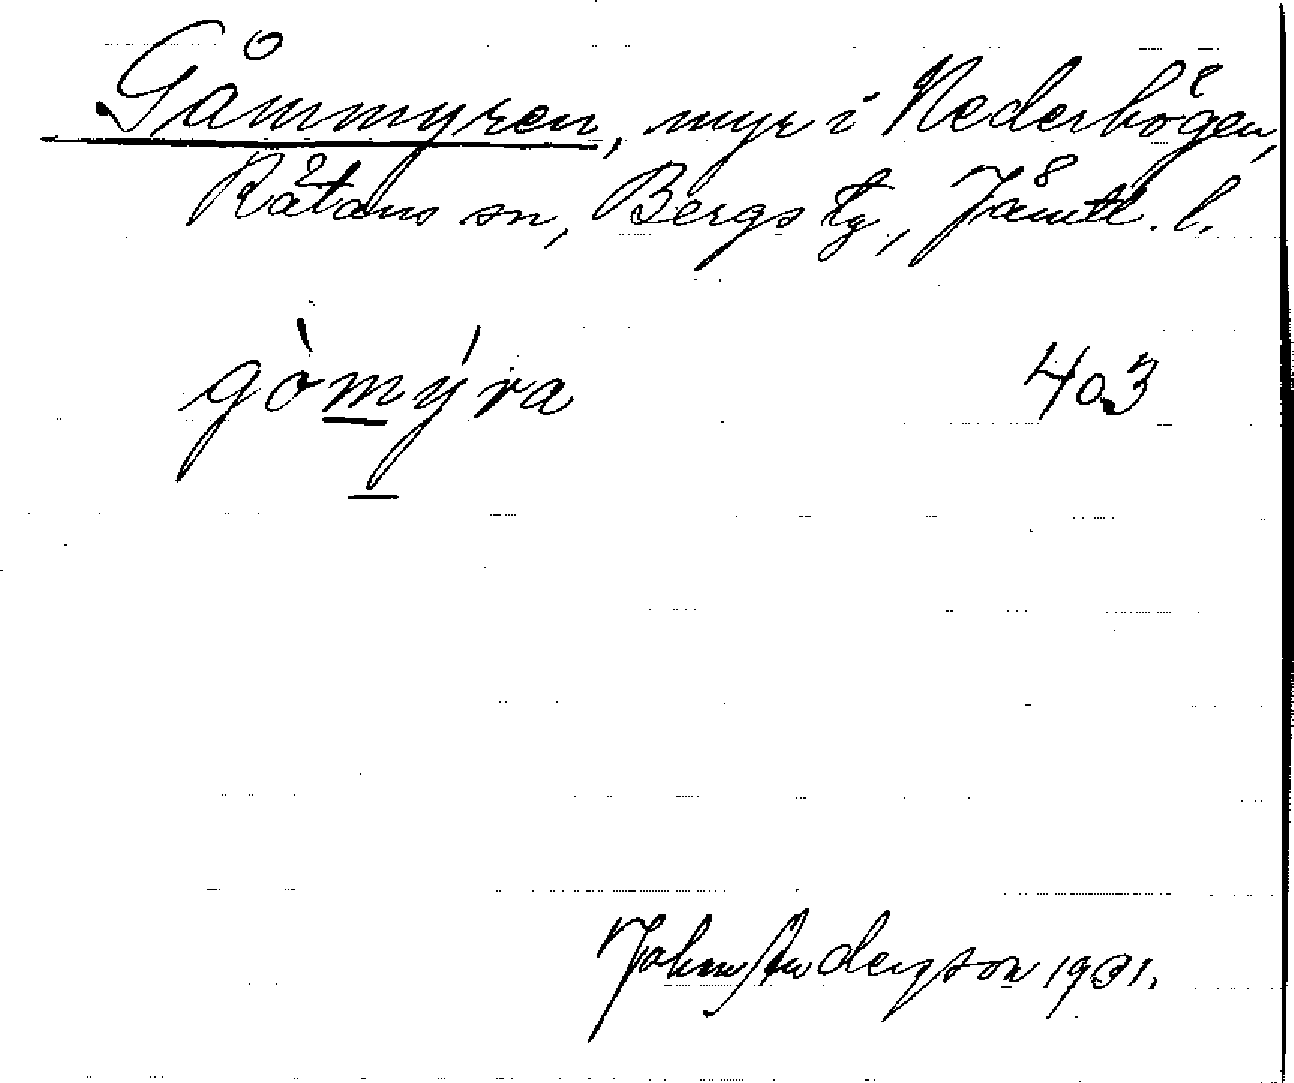 Gåmmyren, myr i Nederhögen,
Rätans sn, Bergs tg., Jämtl. l.
gòmýra 403
John Anderson 1931.